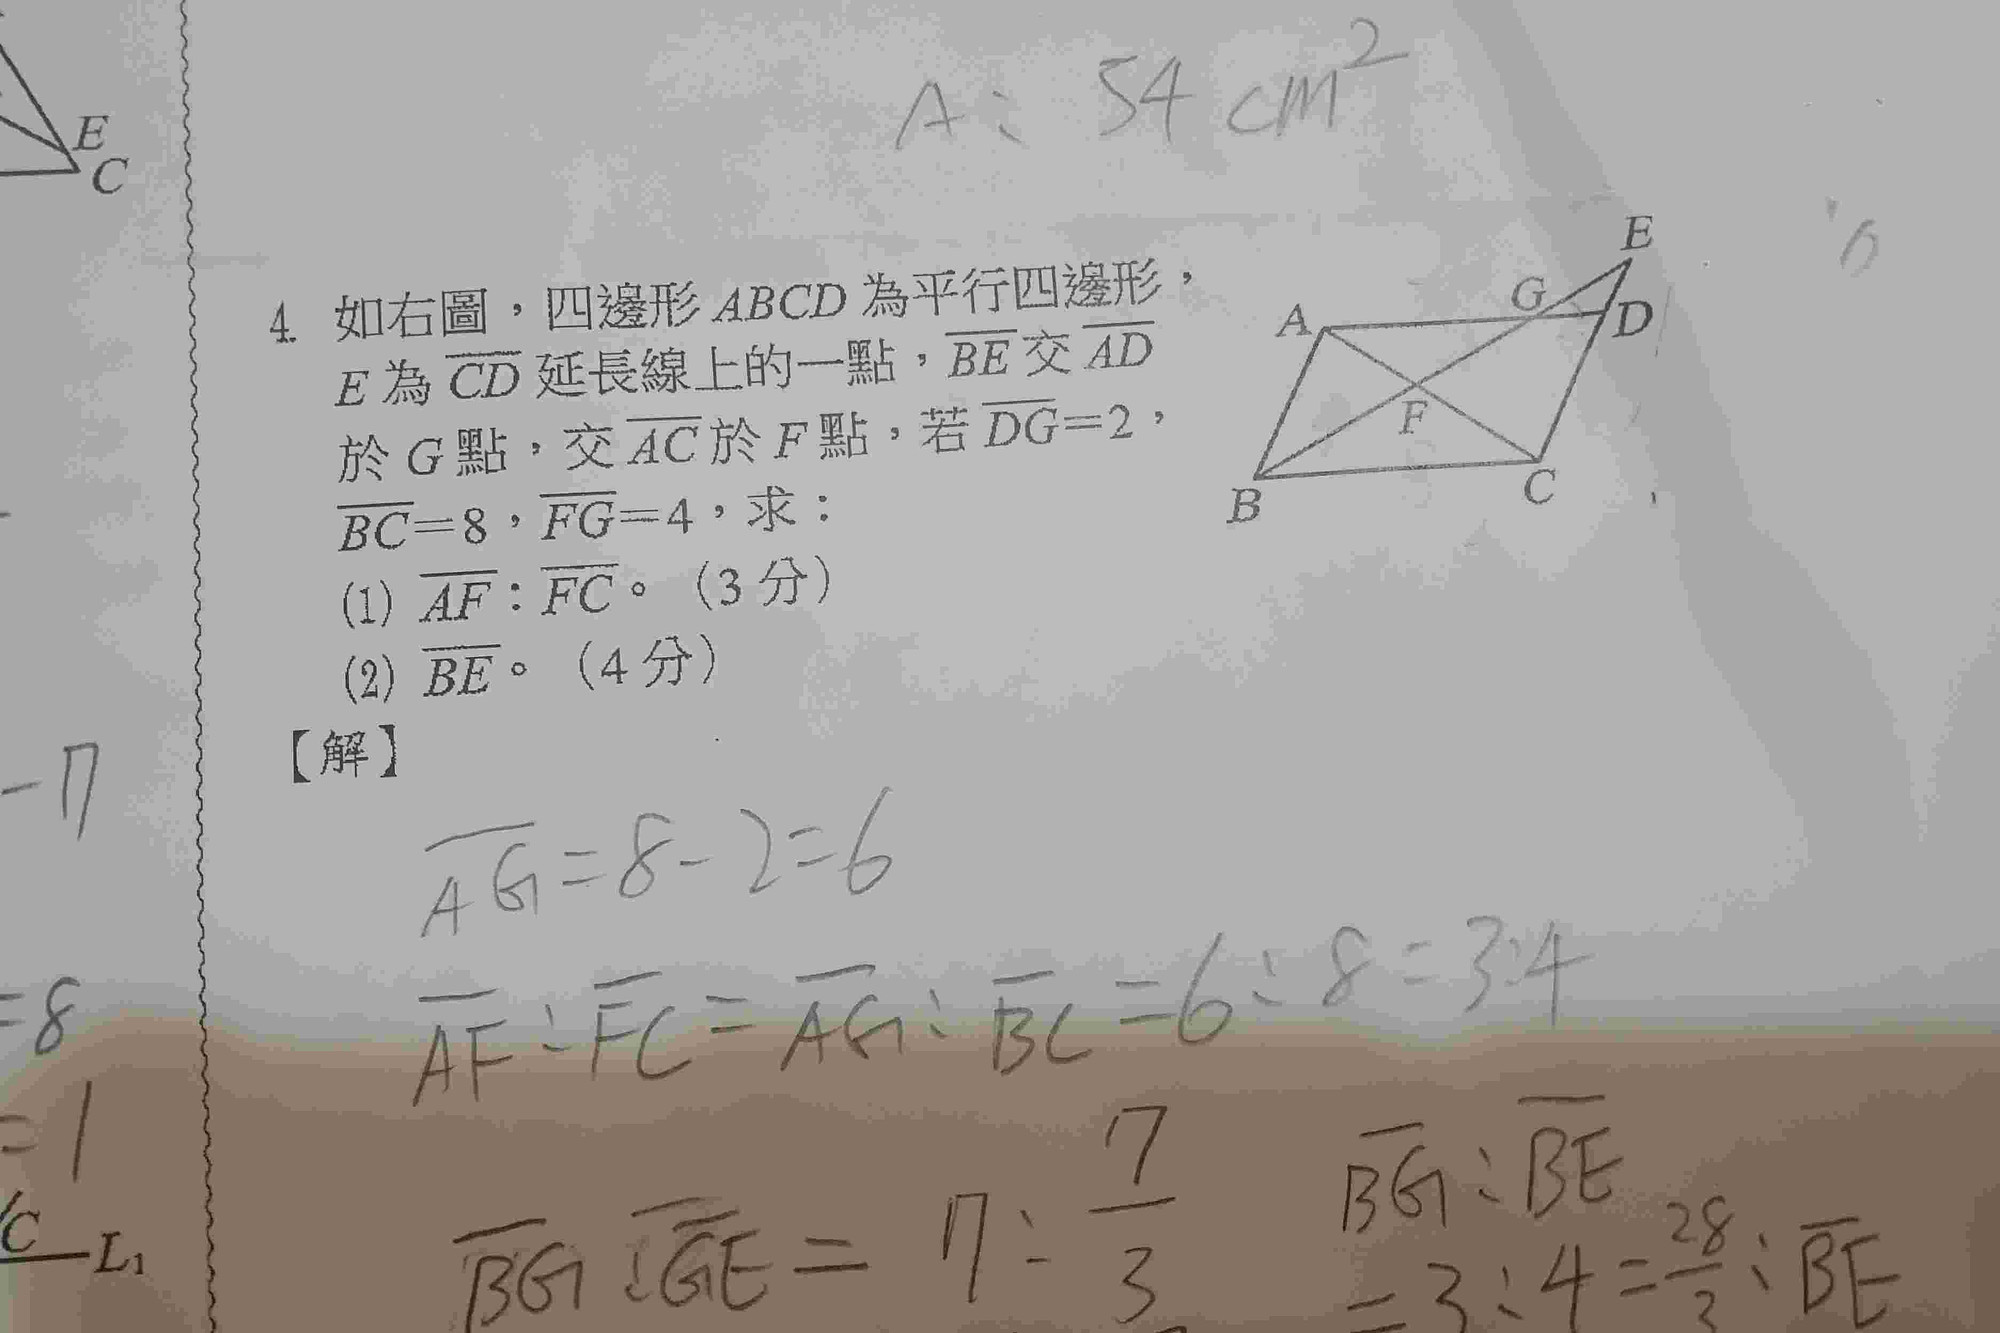 A: 54 cm²
E
C
4. 如右圖，四邊形 ABCD 為平行四邊形，
E 為 CD 延長線上的一點，BE 交 AD
於 G 點，交 AC 於 F 點，若 DG=2，
BC=8，FG=4，求：
(1) AF：FC。（3 分）
(2) BE。（4 分）
【解】
E
G
A
D
F
B
C
-7
AG=8-2=6
AF:FC=AG:BC=6:8=3:4
=8
=1
C
L₁
BG:GE=7:7/3
BG:BE
=3:4=28/3:BE